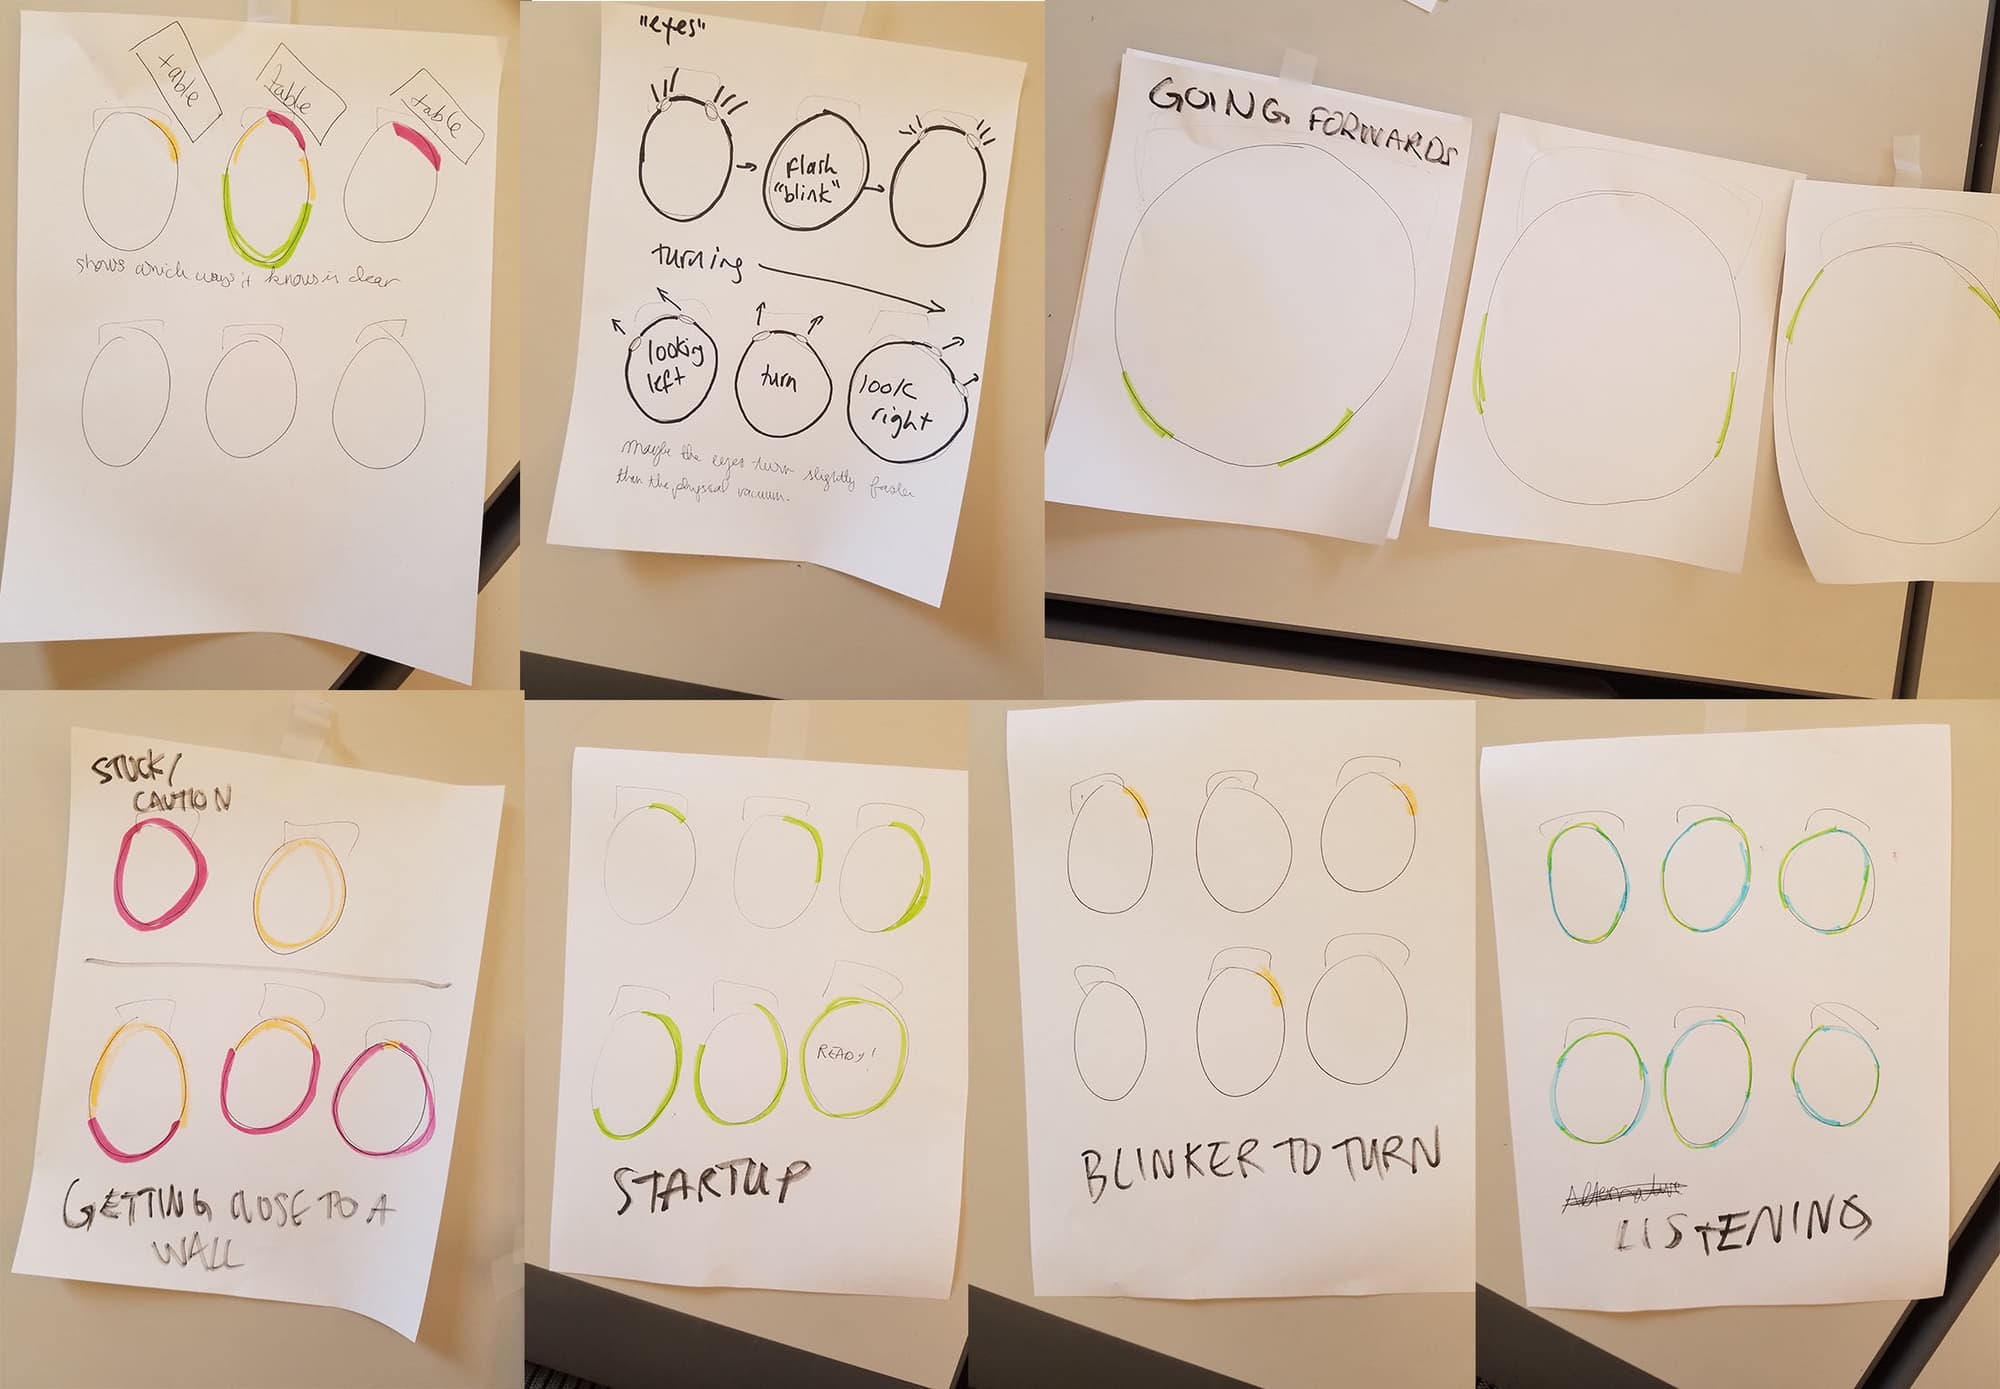 table
table
table
shows which ways it knows is clear
"eyes"
flash
"blink"
turning
looking
left
turn
look
right
maybe the eyes turn slightly faster
than the physical vacuum.
GOING FORWARDS
STUCK/
CAUTION
GETTING CLOSE TO A
WALL
READY!
STARTUP
BLINKER TO TURN
Alternative
LISTENING